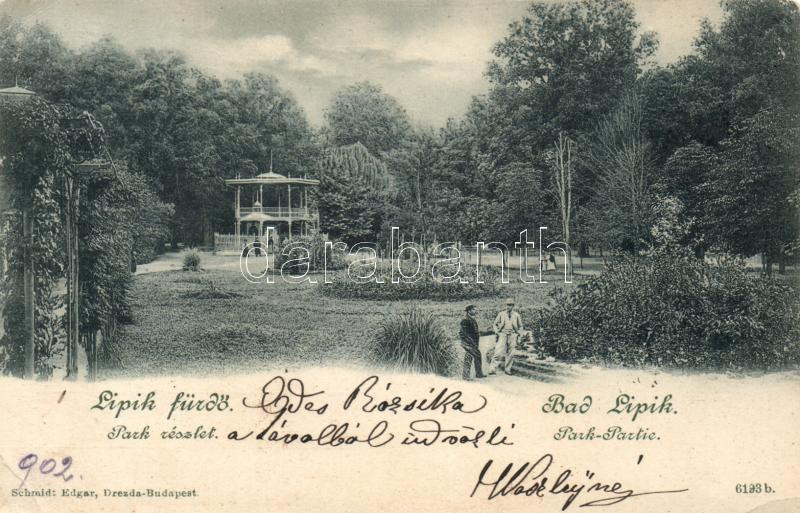 darabanth
Lipik fürdő.
Park részlet.
Édes Rózsika
a távolból üdvözli
Bad Lipik.
Park-Partie.
902.
Schmidt Edgar, Drezda-Budapest.
6193 b.